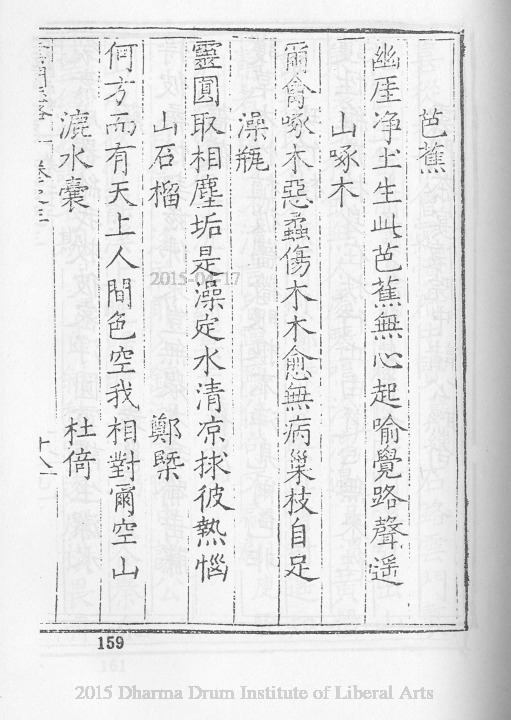 芭蕉
幽厓净土生此芭蕉無心起喻覺路聲遥
山啄木
爾禽啄木惡蟊傷木木愈無病巢枝自足
澡瓶
靈圓取相塵垢是澡定水清凉救彼熱惱
山石榴 鄭槩
何方而有天上人間色空我相對爾空山
漉水囊 杜倚
十八
159
2015-04-17
2015 Dharma Drum Institute of Liberal Arts